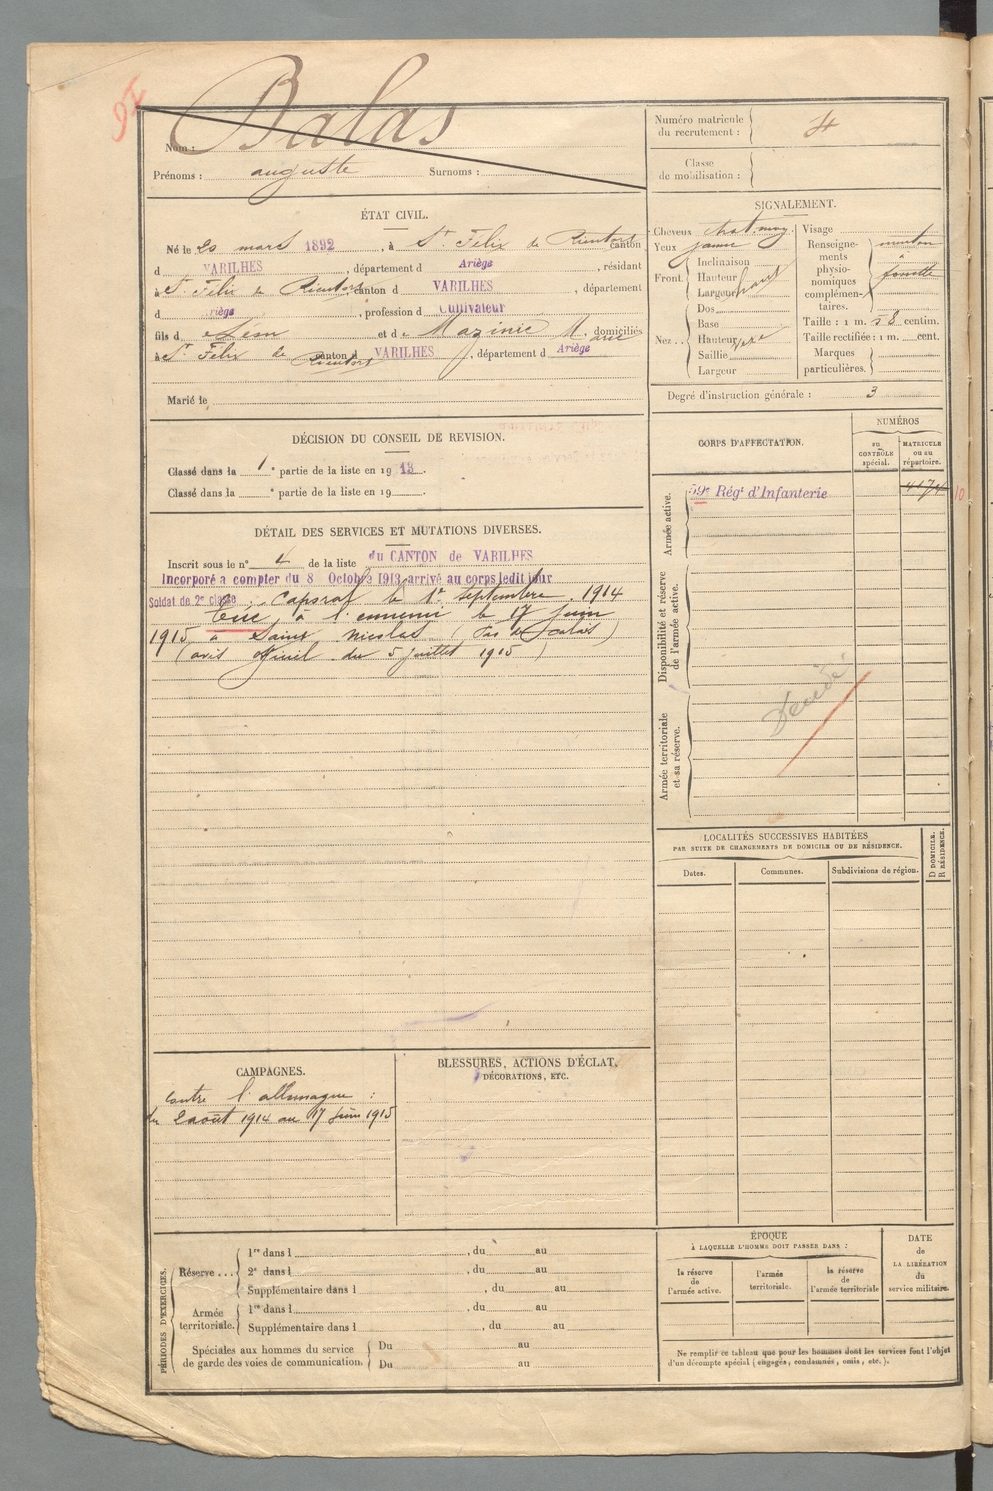 Balas
Nom :
Prénoms : auguste Surnoms :
Numéro matricule
du recrutement : 4
Classe
de mobilisation :
ÉTAT CIVIL.
Né le 20 mars 1892, à St Félix de Rieutort canton
d VARILHES, département d Ariège, résidant
à St Félix de Rieutort canton d VARILHES, département
d riège, profession d Cultivateur
fils d et de domiciliés
à St Félix de Rieutort canton d VARILHES, département d Ariège
Marié le
SIGNALEMENT.
Cheveux chat. moy.
Yeux jaune
Front.
Inclinaison
Hauteur haut
Largeur
Nez..
Dos
Base
Hauteur
Saillie
Largeur
Visage
Renseigne-
ments
physio-
nomiques
complémen-
taires.
menton
à
fossette
Taille : 1 m. 58 centim.
Taille rectifiée : 1 m. cent.
Marques
particulières.
Degré d'instruction générale : 3
DÉCISION DU CONSEIL DE REVISION.
Classé dans la 1e partie de la liste en 1913.
Classé dans la e partie de la liste en 19
DÉTAIL DES SERVICES ET MUTATIONS DIVERSES.
Inscrit sous le n° 4 de la liste du CANTON de VARILHES
Incorporé a compter du 8 Octobre 1913 arrivé au corps ledit jour
Soldat de 2e classe ; Caporal le 1er septembre 1914
Tué à l'ennemi le 17 juin
1915 à Saint Nicolas (Pas de Calais)
(avis officiel du 5 juillet 1915)
CORPS D'AFFECTATION.
NUMÉROS
au
CONTRÔLE
spécial.
MATRICULE
ou au
répertoire.
Armée active.
59e Régt d'Infanterie 4174 10
Disponibilité et réserve
de l'armée active.
Armée territoriale
et sa réserve.
Décédé
LOCALITÉS SUCCESSIVES HABITÉES
PAR SUITE DE CHANGEMENTS DE DOMICILE OU DE RÉSIDENCE.
Dates. Communes. Subdivisions de région.
D DOMICILE.
R RÉSIDENCE.
CAMPAGNES.
contre l'allemagne :
du 2 août 1914 au 17 juin 1915
BLESSURES, ACTIONS D'ÉCLAT,
DÉCORATIONS, ETC.
PÉRIODES D'EXERCICES.
Réserve ...
1re dans l , du au
2e dans l , du au
Supplémentaire dans l , du au
Armée
territoriale.
1re dans l , du au
Supplémentaire dans l , du au
Spéciales aux hommes du service
de garde des voies de communication.
Du au
Du au
ÉPOQUE
À LAQUELLE L'HOMME DOIT PASSER DANS :
la réserve
de
l'armée active.
l'armée
territoriale.
la réserve
de
l'armée territoriale
DATE
de
LA LIBÉRATION
du
service militaire.
Ne remplir ce tableau que pour les hommes dont les services font l'objet
d'un décompte spécial (engagés, condamnés, omis, etc.).